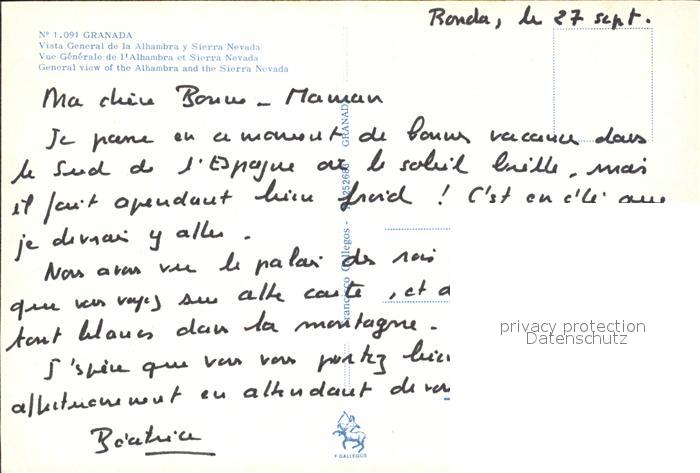 Nº 1.091 GRANADA
Vista General de la Alhambra y Sierra Nevada
Vue Générale de l'Alhambra et Sierra Nevada
General view of the Alhambra and the Sierra Nevada
Ronda, le 27 sept.
Ma chère Bonne-Maman
Je passe en ce moment de bonnes vacances dans
le Sud de l'Espagne où le soleil brille, mais
il fait cependant bien froid ! C'est en été que
je devrais y aller.
Nous avons vu le palais des rois
que vous voyez sur cette carte, et
tout blancs dans la montagne.
J'espère que vous vous portez bien
affectueusement en attendant de
Béatrice
GRANADA
Gallegos -
F GALLEGOS
privacy protection
Datenschutz